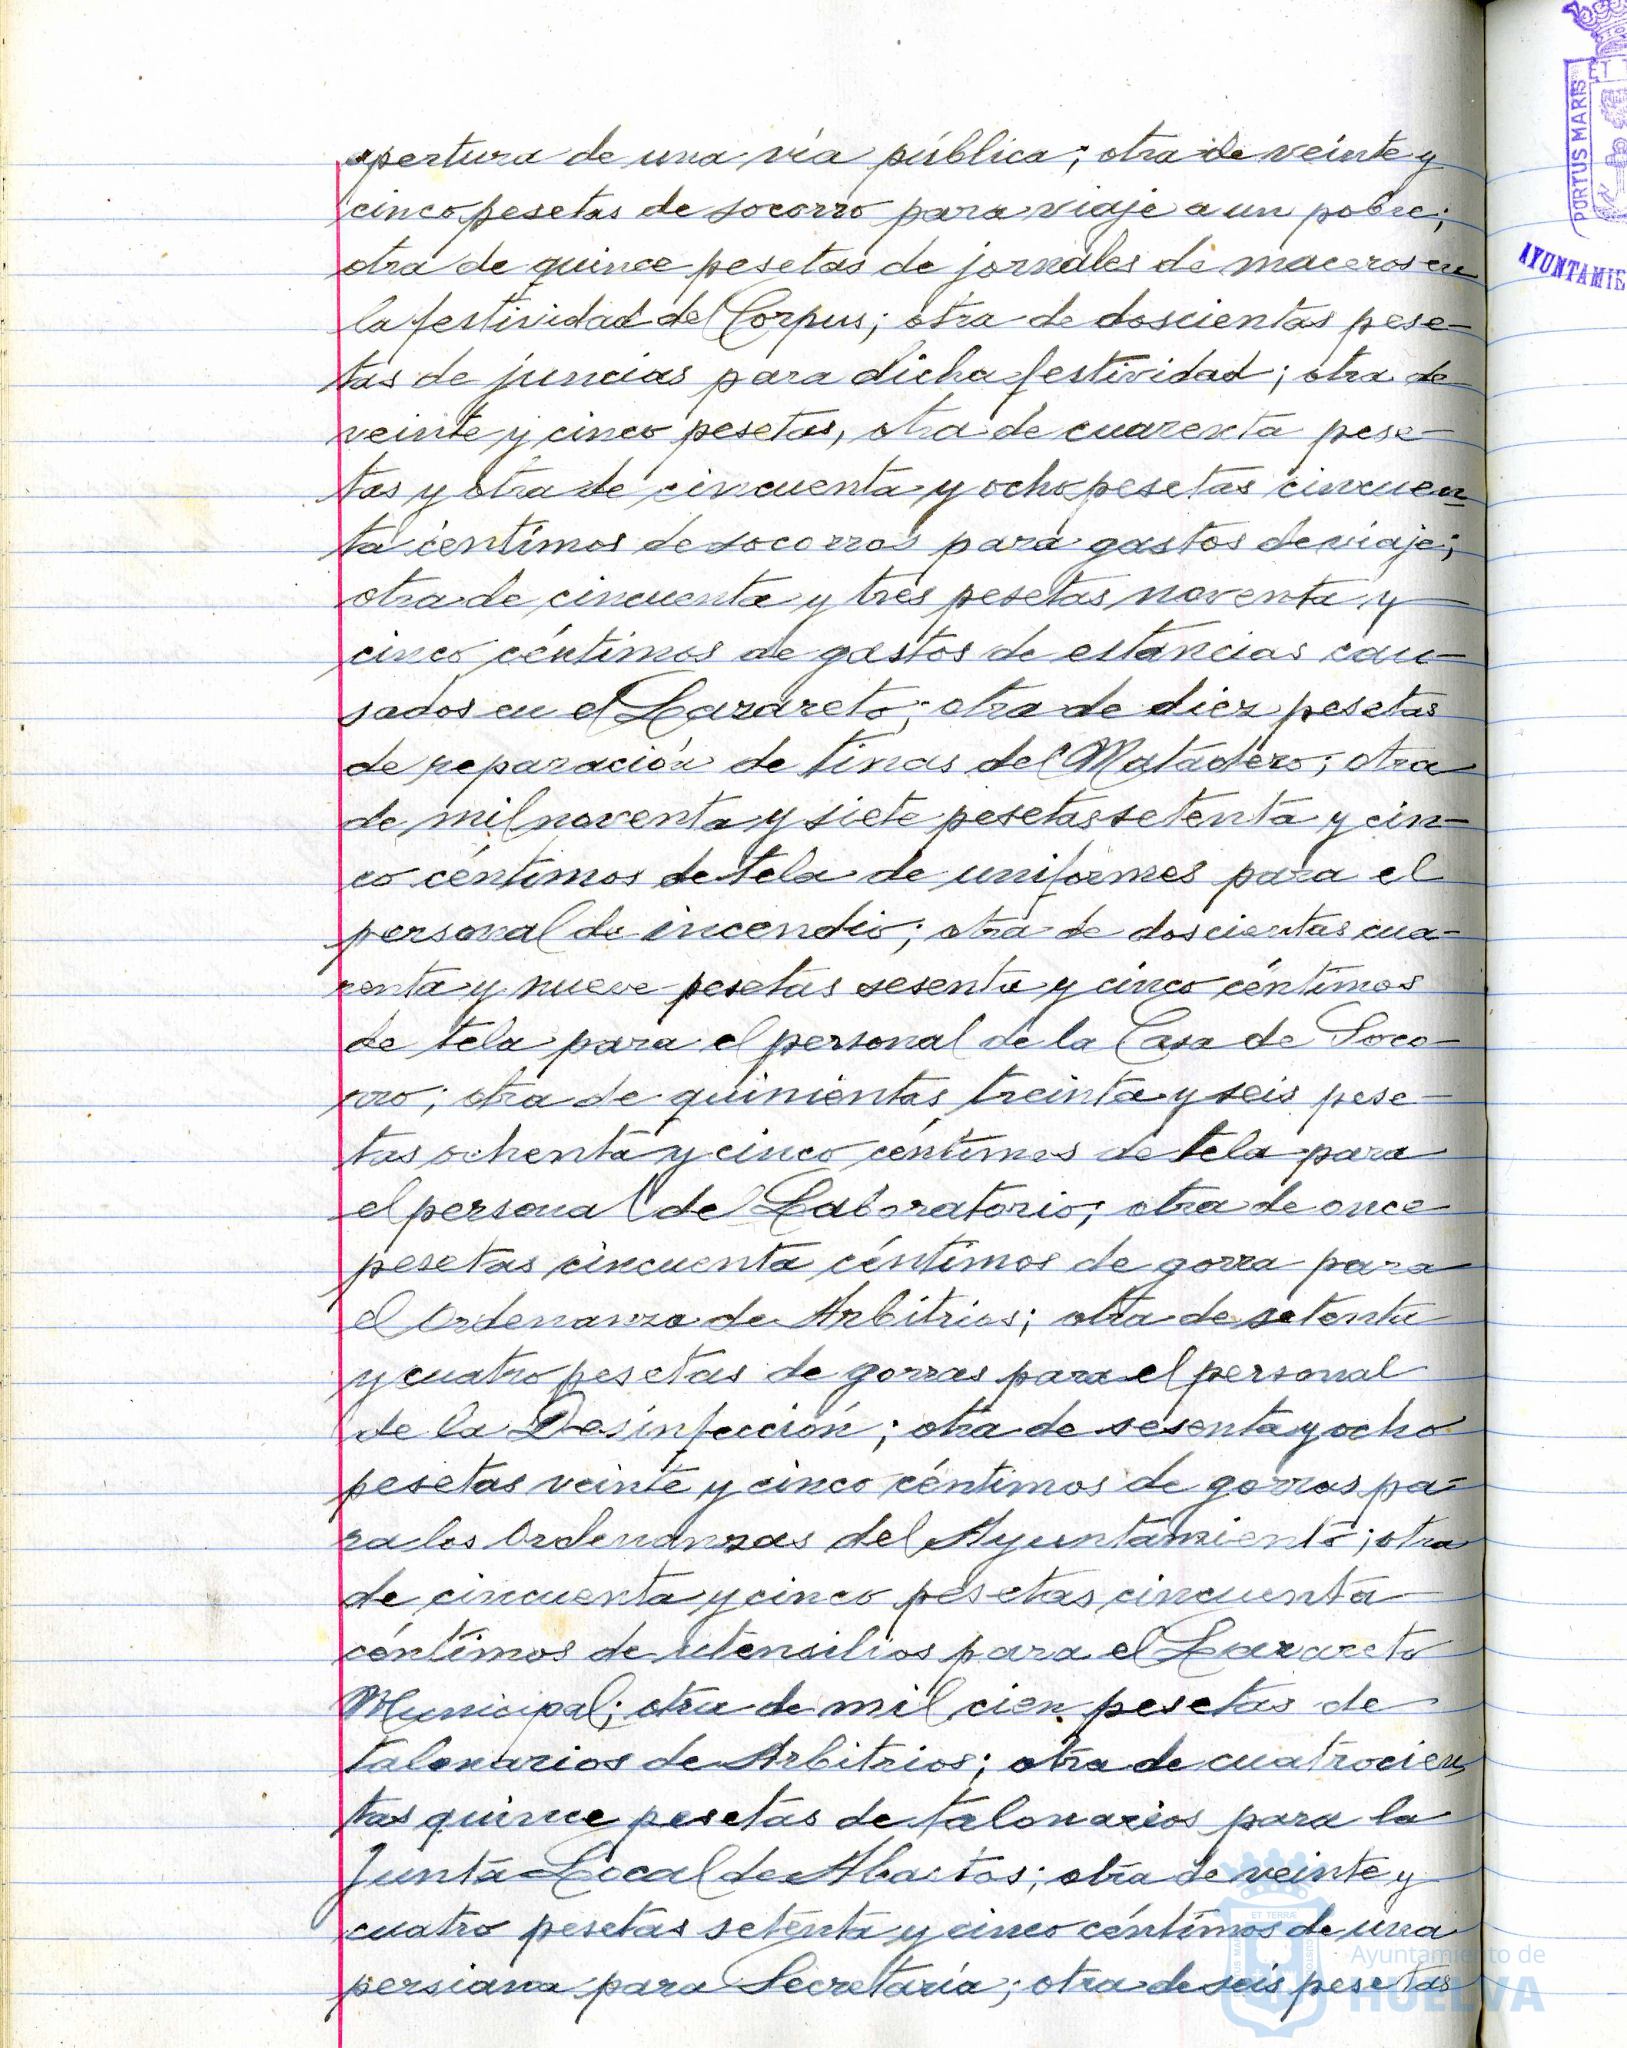 apertura de una vía pública; otra de veinte y
cinco pesetas de socorro para viaje a un pobre;
otra de quince pesetas de jornales de maceros en
la festividad del Corpus; otra de doscientas pese-
tas de juncias para dicha festividad; otra de
veinte y cinco pesetas, otra de cuarenta pese-
tas y otra de cincuenta y ocho pesetas cincuen
ta céntimos de socorros para gastos de viaje;
otra de cincuenta y tres pesetas noventa y
cinco céntimos de gastos de estancias cau-
sados en el Lazareto; otra de diez pesetas
de reparación de tinas del Matadero; otra
de mil noventa y siete pesetas setenta y cin-
co céntimos de tela de uniformes para el
personal de incendio; otra de doscientas cua-
renta y nueve pesetas sesenta y cinco céntimos
de tela para el personal de la Casa de Soco-
rro; otra de quinientas treinta y seis pese-
tas ochenta y cinco céntimos de tela para
el personal del Laboratorio; otra de once
pesetas cincuenta céntimos de gorra para
el Ordenanza de Arbitrios; otra de setenta
y cuatro pesetas de gorras para el personal
de la Desinfección; otra de sesenta y ocho
pesetas veinte y cinco céntimos de gorras pa-
ra los Ordenanzas del Ayuntamiento; otra
de cincuenta y cinco pesetas cincuenta
céntimos de utensilios para el Lazareto
Municipal; otra de mil cien pesetas de
talonarios de Arbitrios; otra de cuatrocien
tas quince pesetas de talonarios para la
Junta Local de Abastos; otra de veinte y
cuatro pesetas setenta y cinco céntimos de una
persiana para Secretaría; otra de seis pesetas
PORTUS MARIS
ET T
AYUNTAMIE
ET TERRÆ
Ayuntamiento de
HUELVA